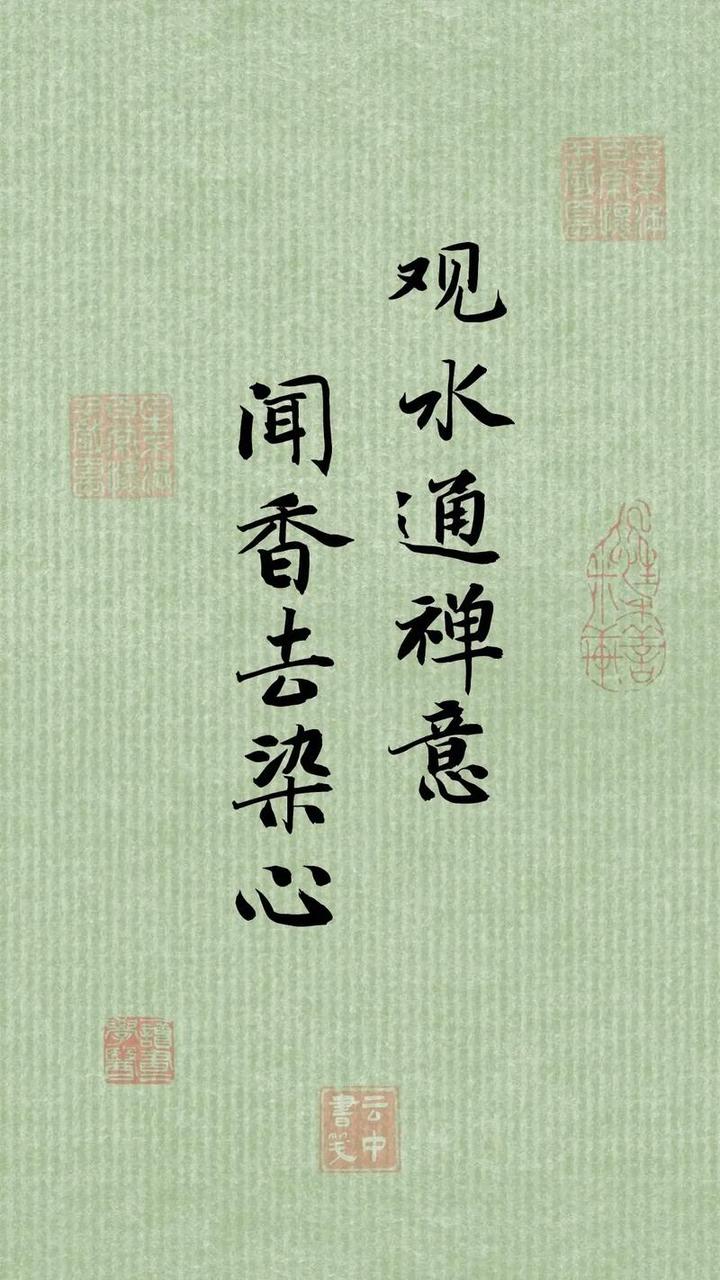 观水通禅意
闻香去染心
云中
書笺